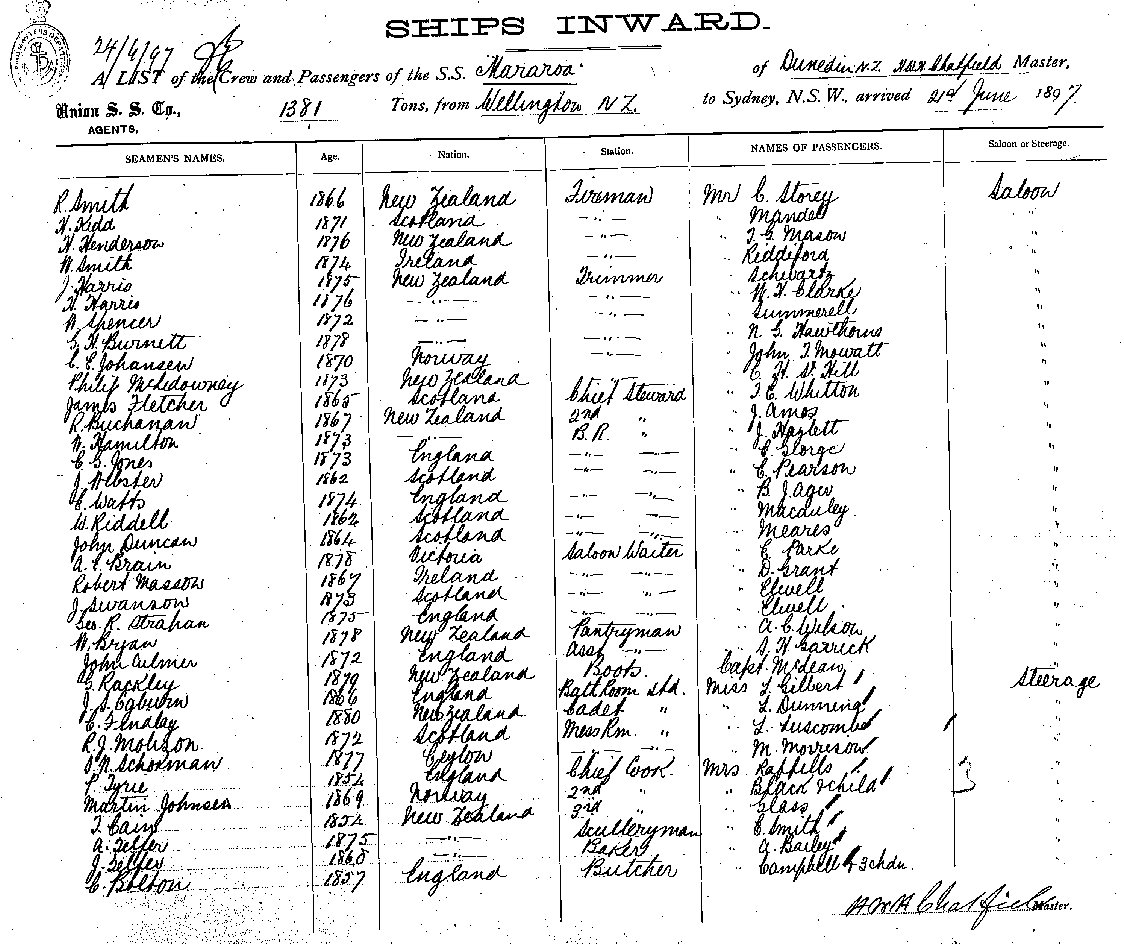 SHIPS INWARD.
24/6/97
A LIST of the Crew and Passengers of the S.S. Mararoa of Dunedin N.Z. HWH Chatfield Master,
Union S. S. Co., 1381 Tons, from Wellington N Z. to Sydney, N.S.W., arrived 21st June 1897
AGENTS,
SEAMEN'S NAMES. Age. Nation. Station. NAMES OF PASSENGERS. Saloon or Steerage.
R. Smith 1866 New Zealand Fireman Mr C. Storey Saloon
H. Kidd 1871 Scotland " " Mandell "
H. Henderson 1876 New Zealand " " T G Mason "
W. Smith 1874 Ireland " " Riddiford "
J Harris 1875 New Zealand Trimmer " Schwartz "
H. Harris 1876 " " " W. H. Clarke "
W. Spencer 1872 " " " Summerell "
G. H. Burnett 1878 " " " N G Hawthorne "
C. E. Johansen 1870 Norway " " John T. Mowatt "
Philip 1873 New Zealand " E H St Hill "
James Fletcher 1865 Scotland Chief Steward " T E Whitton "
R. Buchanan 1867 New Zealand 2nd " " J. Amos "
W. Hamilton 1873 " B.R. " " J. Hazlett "
C. G. Jones 1873 England " " " E George "
J. Webster 1862 Scotland " " " E Pearson "
E. Watts 1874 England " " " B. J. "
W. Riddell 1862 Scotland " " " Macauley "
John Duncan 1864 Scotland " " " Meares "
A. E. Brain 1878 Victoria Saloon Waiter " E Parke "
Robert Masson 1867 Ireland " " " D. Grant "
J. Swanson 1873 Scotland " " " Elwell "
Geo. R. Strahan 1875 England " " " Elwell "
W. Bryan 1878 New Zealand Pantryman " A. C. Wilson "
John Culmer 1872 England Asst " " S. H Garrick "
G. Rackley 1879 New Zealand Boots. Capt McLean "
J. S. Ogburn 1866 England Bath Room Std. Miss L. Gilbert Steerage
C. Findlay 1880 New Zealand Cadet " " L. Dunning "
R. J. 1872 Scotland Mess Rm. " " L. Luscombe "
Schokman 1877 Ceylon " " M. Morrison "
P. Tyrie 1854 England Chief Cook. Mrs "
Martin Johnsen 1869 Norway 2nd " " Black & child "
T. Cain 1854 New Zealand 3rd " " Glass "
A. Telfer 1875 " Sculleryman " E. Smith "
J. 1860 " Baker " A. Bailey "
C. Bolton 1857 England Butcher " Campbell & 3 chdn. "
HWH Chatfield Master.